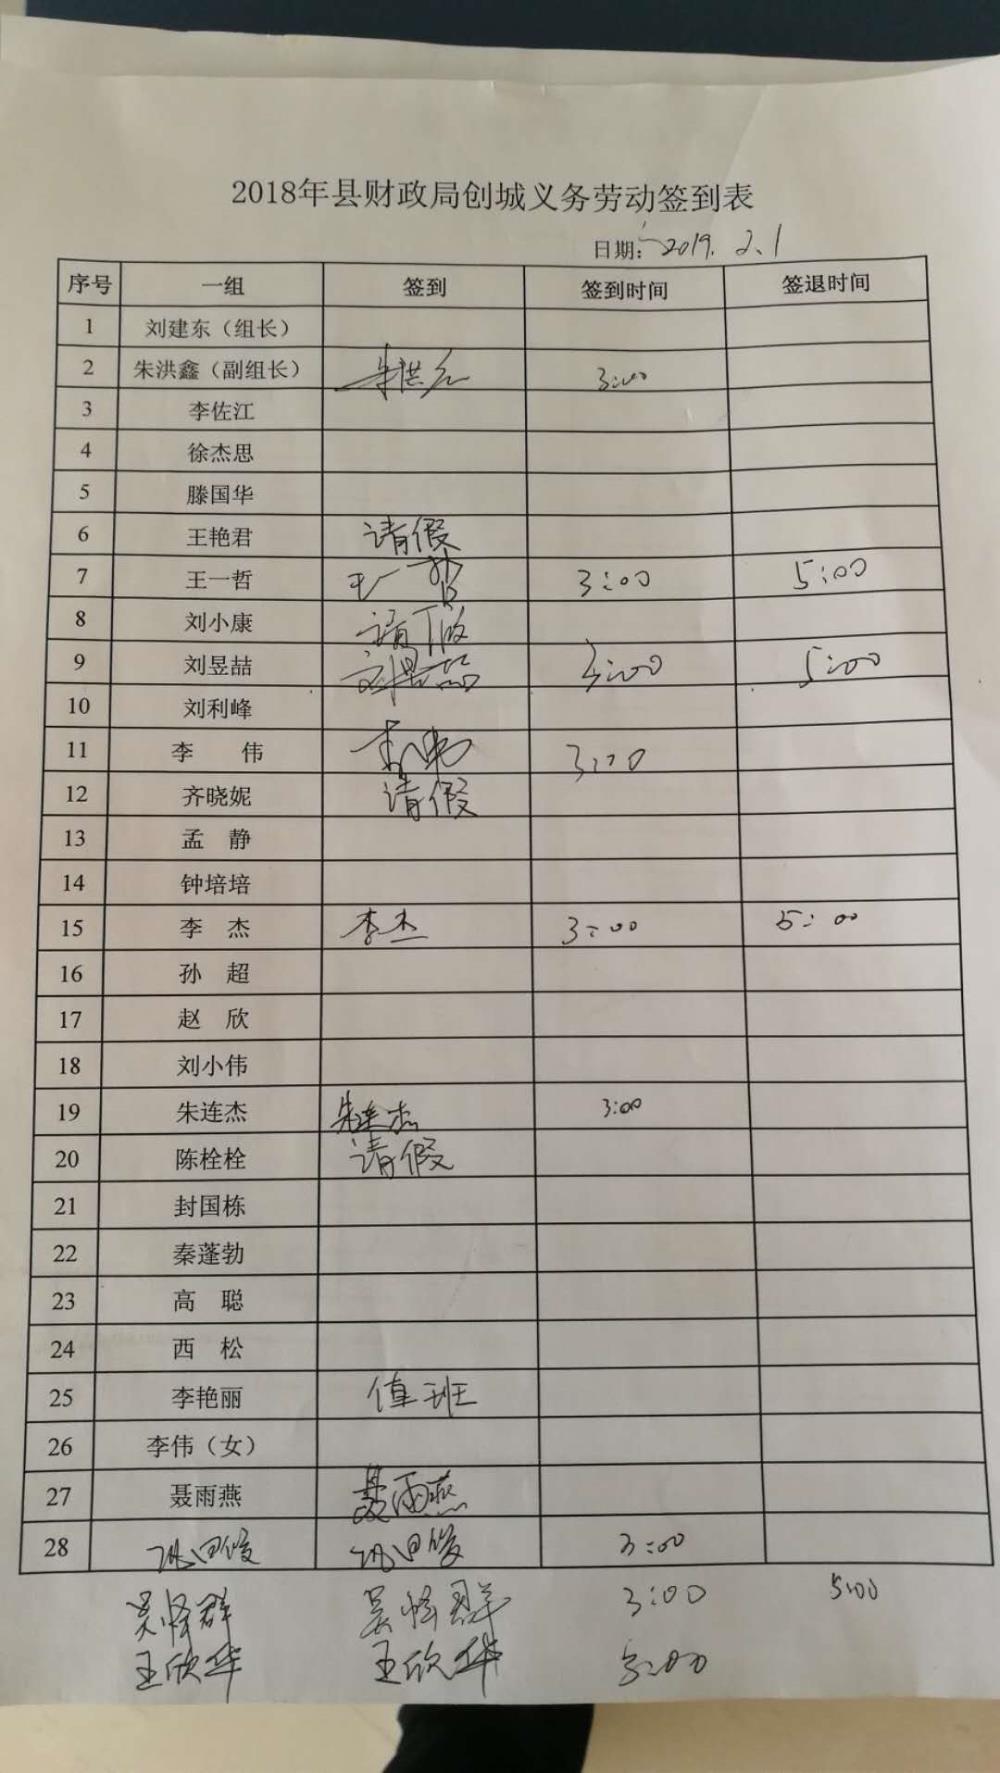 2018年县财政局创城义务劳动签到表
日期: 2019.2.1
序号 一组 签到 签到时间 签退时间
1 刘建东（组长）
2 朱洪鑫（副组长） 朱洪鑫 3:00
3 李佐江
4 徐杰思
5 滕国华
6 王艳君 请假
7 王一哲 王一哲 3:00 5:00
8 刘小康 请假
9 刘昱喆 刘昱喆 3:00 5:00
10 刘利峰
11 李 伟 李伟 3:00
12 齐晓妮 请假
13 孟 静
14 钟培培
15 李 杰 李杰 3:00 5:00
16 孙 超
17 赵 欣
18 刘小伟
19 朱连杰 朱连杰 3:00
20 陈栓栓 请假
21 封国栋
22 秦蓬勃
23 高 聪
24 西 松
25 李艳丽 值班
26 李伟（女）
27 聂雨燕 聂雨燕
28 3:00
吴怿群 吴怿群 3:00 5:00
王欣华 王欣华 3:00